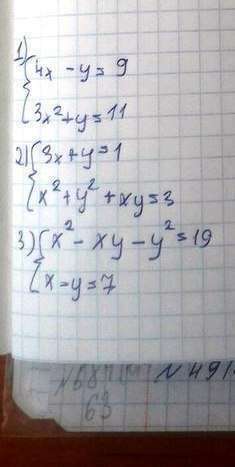 1) { 4x - y = 9
3x² + y = 11
2) { 3x + y = 1
x² + y² + xy = 3
3) { x² - xy - y² = 19
x - y = 7
N 491
63